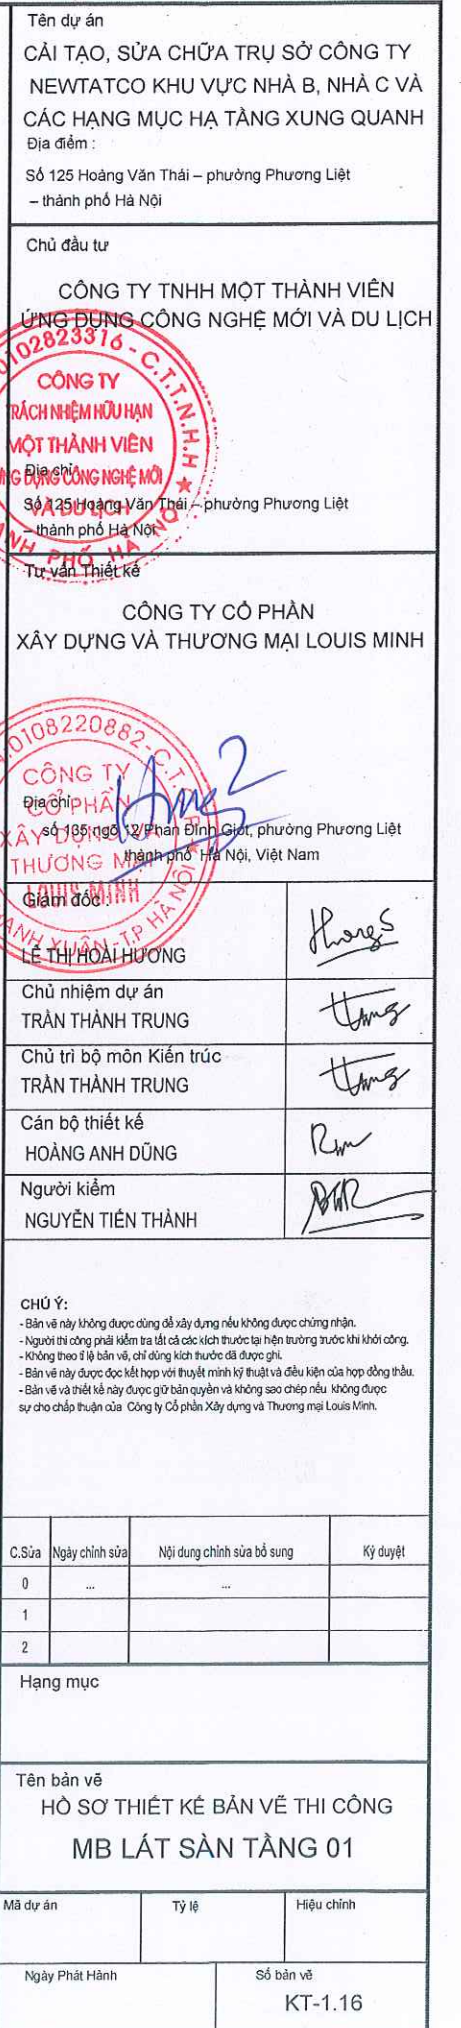 Tên dự án
CẢI TẠO, SỬA CHỮA TRỤ SỞ CÔNG TY
NEWTATCO KHU VỰC NHÀ B, NHÀ C VÀ
CÁC HẠNG MỤC HẠ TẦNG XUNG QUANH
Địa điểm :
Số 125 Hoàng Văn Thái – phường Phương Liệt
– thành phố Hà Nội
Chủ đầu tư
CÔNG TY TNHH MỘT THÀNH VIÊN
ỨNG DỤNG CÔNG NGHỆ MỚI VÀ DU LỊCH
0102823316 - C.T.T.N.H.H
CÔNG TY
TRÁCH NHIỆM HỮU HẠN
MỘT THÀNH VIÊN
ỨNG DỤNG CÔNG NGHỆ MỚI
VÀ DU LỊCH
THÀNH PHỐ HÀ NỘI
Địa chỉ
Số 125 Hoàng Văn Thái – phường Phương Liệt
– thành phố Hà Nội
Tư vấn Thiết kế
CÔNG TY CỔ PHẦN
XÂY DỰNG VÀ THƯƠNG MẠI LOUIS MINH
0108220882-C.T.C.P
CÔNG TY
CỔ PHẦN
XÂY DỰNG VÀ
THƯƠNG MẠI
LOUIS MINH
THANH XUÂN - T.P HÀ NỘI
Địa chỉ
số 135 ngõ 12/Phan Đình Giót, phường Phương Liệt
thành phố Hà Nội, Việt Nam
Giám đốc
LÊ THỊ HOÀI HƯƠNG
Chủ nhiệm dự án
TRẦN THÀNH TRUNG
Chủ trì bộ môn Kiến trúc
TRẦN THÀNH TRUNG
Cán bộ thiết kế
HOÀNG ANH DŨNG
Người kiểm
NGUYỄN TIẾN THÀNH
CHÚ Ý:
- Bản vẽ này không được dùng để xây dựng nếu không được chứng nhận.
- Người thi công phải kiểm tra tất cả các kích thước tại hiện trường trước khi khởi công.
- Không theo tỉ lệ bản vẽ, chỉ dùng kích thước đã được ghi.
- Bản vẽ này được đọc kết hợp với thuyết minh kỹ thuật và điều kiện của hợp đồng thầu.
- Bản vẽ và thiết kế này được giữ bản quyền và không sao chép nếu không được
sự cho chấp thuận của Công ty Cổ phần Xây dựng và Thương mại Louis Minh.
C.Sửa Ngày chỉnh sửa Nội dung chỉnh sửa bổ sung Ký duyệt
0 ... ...
1
2
Hạng mục
Tên bản vẽ
HỒ SƠ THIẾT KẾ BẢN VẼ THI CÔNG
MB LÁT SÀN TẦNG 01
Mã dự án Tỷ lệ Hiệu chỉnh
Ngày Phát Hành Số bản vẽ
KT-1.16